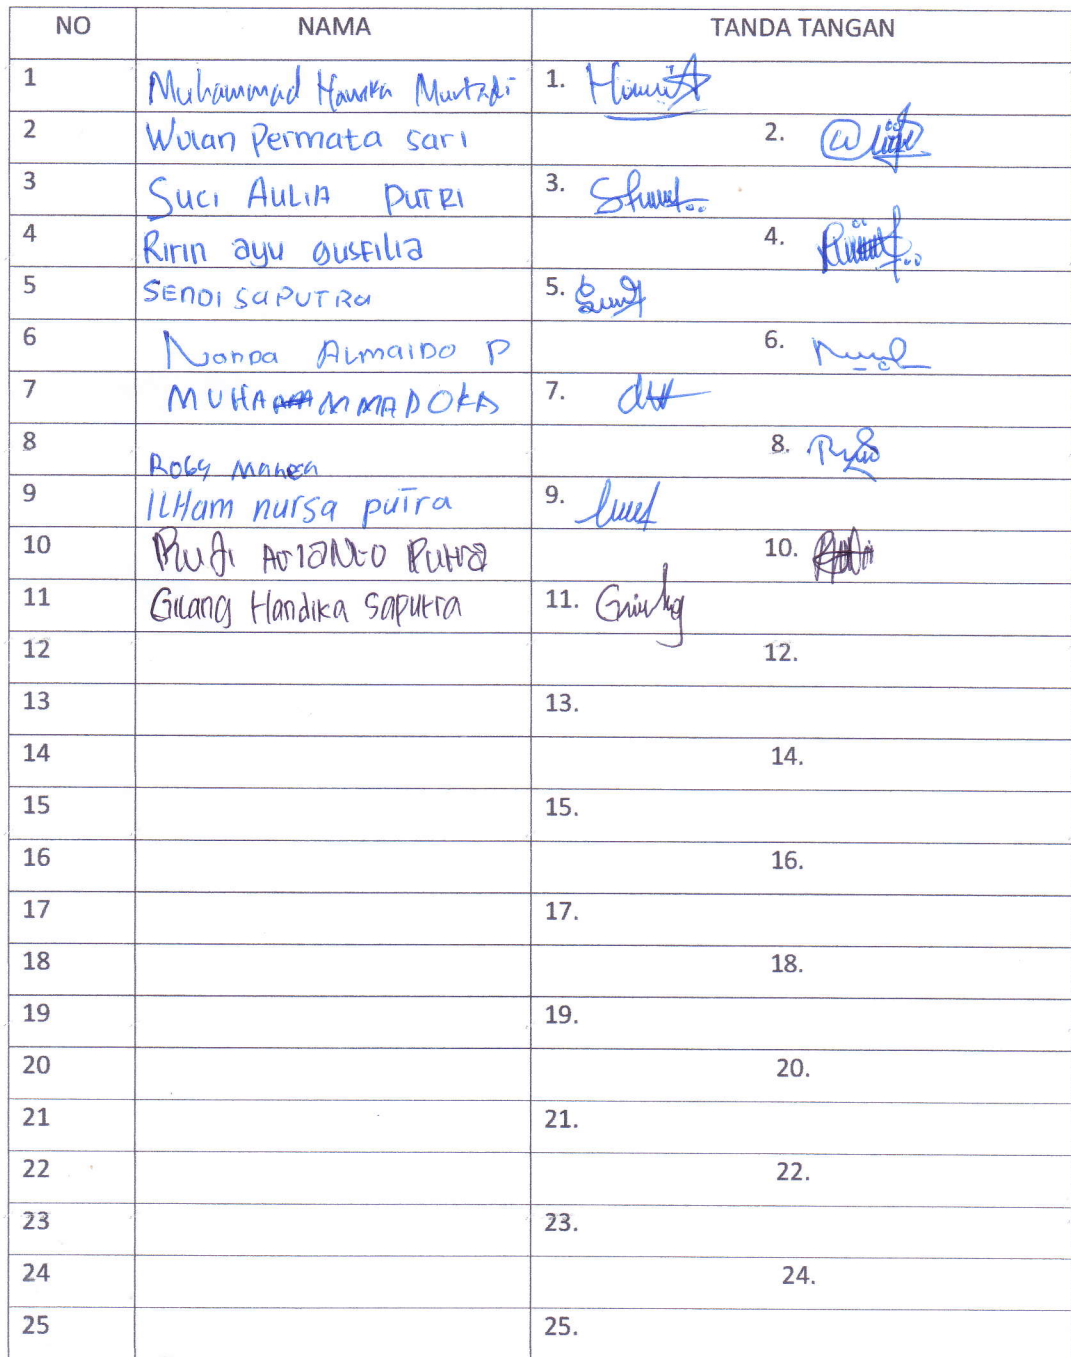 NO NAMA TANDA TANGAN
1 Muhammad 1.
2 Wulan Permata sari 2.
3 Suci AULIA PUTRI 3.
4 Ririn ayu gusFilia 4.
5 SENDI SAPUTRA 5.
6 Nanda ALmaiDo P 6.
7 7.
8 Roby 8.
9 ILHam nursa putra 9.
10 Putra 10.
11 Gilang Handika Saputra 11.
12 12.
13 13.
14 14.
15 15.
16 16.
17 17.
18 18.
19 19.
20 20.
21 21.
22 22.
23 23.
24 24.
25 25.